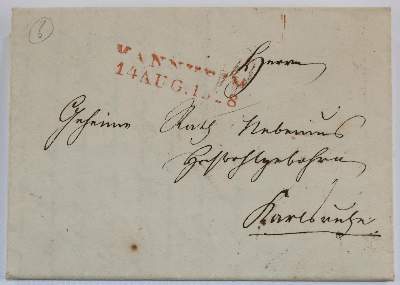 6
MANNHEIM
14 AUG. 1828
Herrn
Geheime Rath Nebenius
Hochwohlgebohrn
Karlsruhe